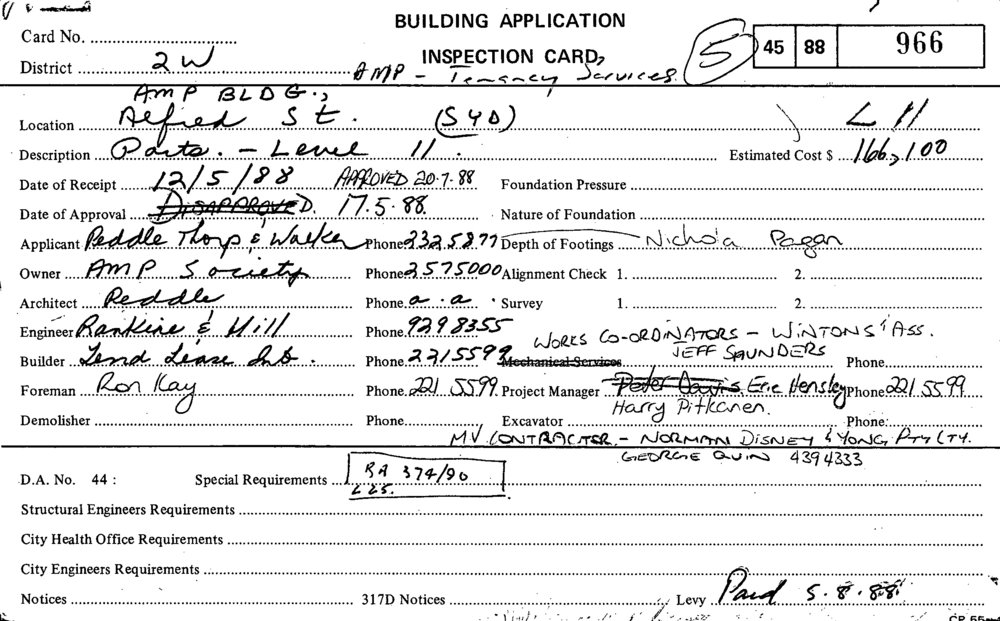 BUILDING APPLICATION
Card No.
INSPECTION CARD
5
45 88 966
District 2W
AMP - Tenancy Services
AMP BLDG.,
Location Alfred St. (SYD) L 11
Description Parts. - Level 11. Estimated Cost $ 166,100
Date of Receipt 12/5/88 APPROVED 20.7.88 Foundation Pressure
Date of Approval DISAPPROVED. 17.5.88. Nature of Foundation
Applicant Peddle Thorp & Walker Phone 232 5877 Depth of Footings Nichola Pagan
Owner AMP Society Phone 2575000 Alignment Check 1. 2.
Architect Peddle Phone a.a. Survey 1. 2.
Engineer Rankine & Hill Phone 9298355 WORKS CO-ORDINATORS - WINTONS' ASS.
JEFF SAUNDERS
Builder Lend Lease Int. Phone 2215599 Mechanical Services Phone
Foreman Ron Kay Phone 221 5599 Project Manager Peter Davis Eric Hensley Phone 221 5599
Harry Pitkanen.
Demolisher Phone Excavator Phone:
MV CONTRACTER - NORMAN DISNEY & YONG PTY LTY.
GEORGIE QUIN 4394333
D.A. No. 44 : Special Requirements RA 374/90
L25.
Structural Engineers Requirements
City Health Office Requirements
City Engineers Requirements
Notices 317D Notices Levy Paid 5.8.88
CP 55